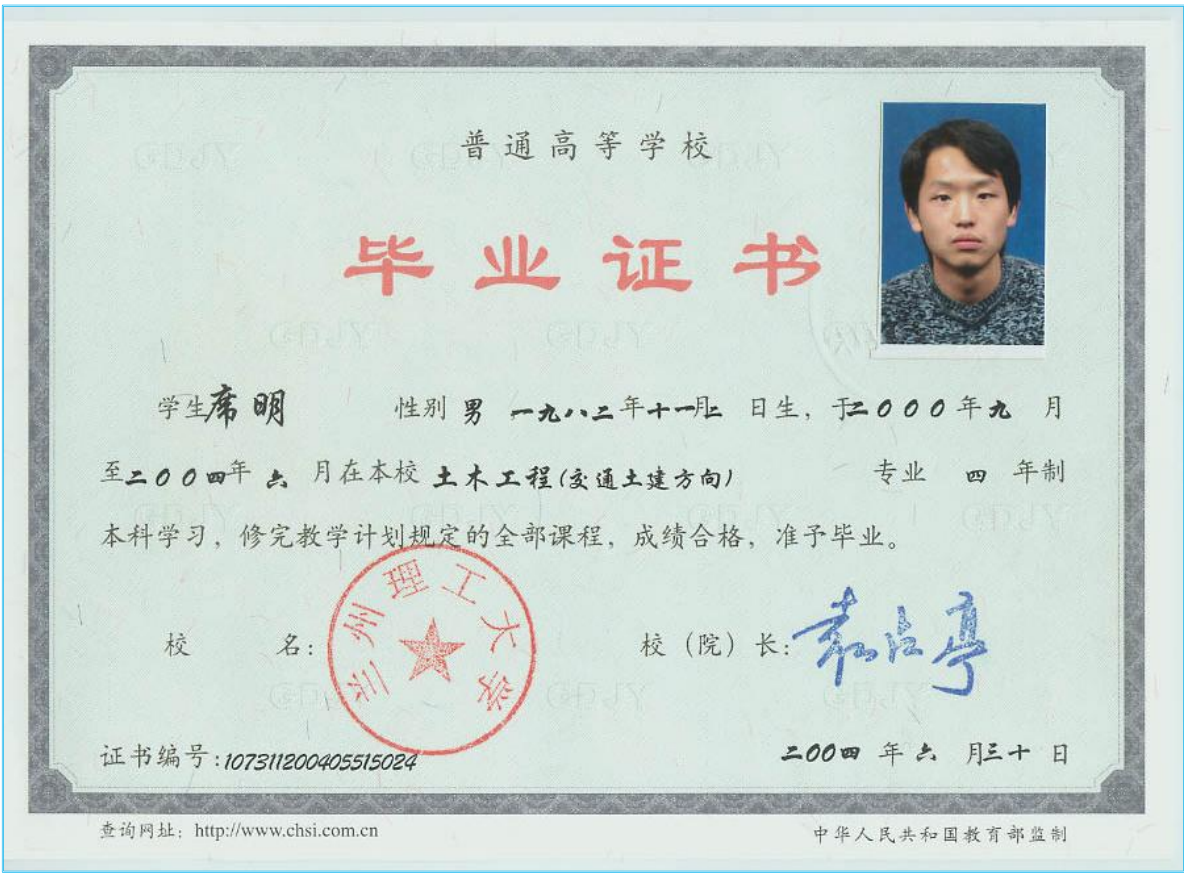 普通高等学校
毕业证书
学生席明 性别 男 一九八二年十一月二日生,于二000年九月
至二00四年六月在本校 土木工程(交通土建方向) 专业 四 年制
本科学习,修完教学计划规定的全部课程,成绩合格,准予毕业。
兰州理工大学
校 名: 校(院)长:袁占亭
证书编号:107311200405515024 二00四年六月三十日
查询网址:http://www.chsi.com.cn 中华人民共和国教育部监制